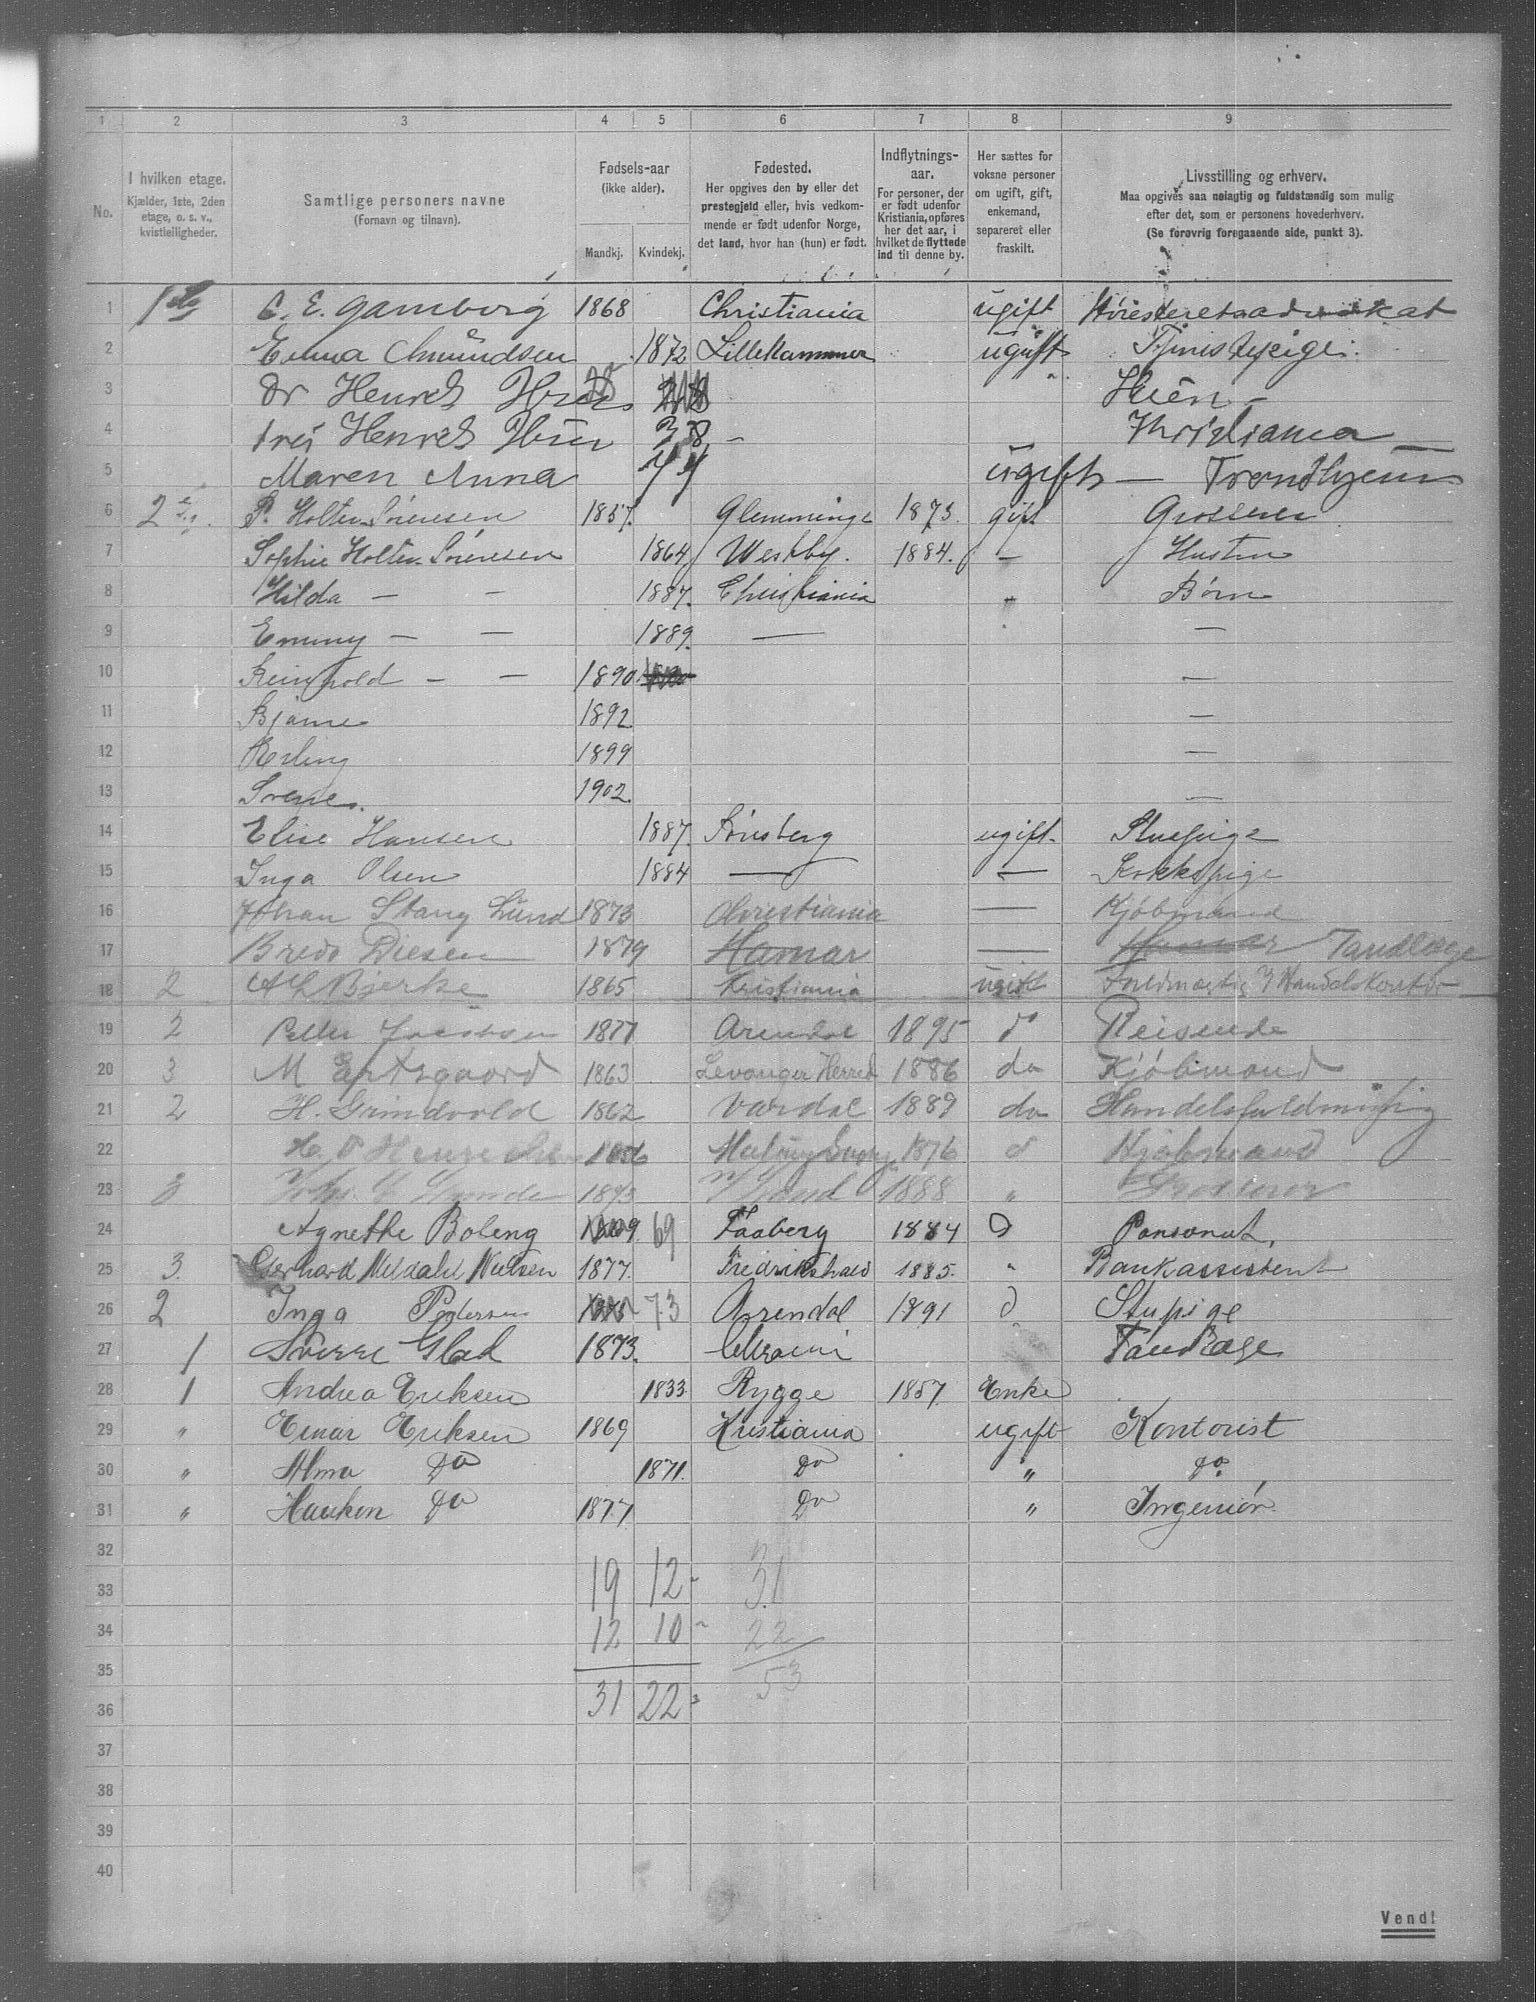 1 2 3 4 5 6 7 8 9
No.
I hvilken etage.
Kjælder, 1ste, 2den
etage, o. s. v.,
kvistleiligheder.
Samtlige personers navne
(Fornavn og tilnavn).
Fødsels-aar
(ikke alder).
Mandkj. Kvindekj.
Fødested.
Her opgives den by eller det
prestegjeld eller, hvis vedkom-
mende er født udenfor Norge,
det land, hvor han (hun) er født.
Indflytnings-
aar.
For personer, der
er født udenfor
Kristiania, opføres
her det aar, i
hvilket de flyttede
ind til denne by.
Her sættes for
voksne personer
om ugift, gift,
enkemand,
separeret eller
fraskilt.
Livsstilling og erhverv.
Maa opgives saa nøiagtig og fuldstændig som mulig
efter det, som er personens hovederhverv.
(Se forøvrig foregaaende side, punkt 3).
1 1 C. E. Gamborg 1868 Christiania ugift Høiesteretsadvokat
2 Emma Amundsen 1872 Lillehammer ugift
3 Dr Henrik Ibsen 28 Skien
4 Henrik Ibsen 38 — Kristiania
5 Maren Anna 44 ugift — Trondhjem
6 2 P. Holter Sørensen 1857 Glemminge 1873 gift Grosserer
7 Sophie Holter Sørensen 1864 Westby. 1884. — Hustru
8 Hilda — — 1887. Christiania " Børn
9 Emmy — — 1889. — —
10 Reinhold — — 1890 —
11 Bjarne 1892 —
12 Erling 1899 —
13 1902 —
14 Elise Hansen 1887. Tønsberg ugift. Stuepige
15 Inga Olsen 1884 — — Kokkepige
16 Johan Stang Lund 1873 Christiania — Kjøbmand
17 Bredo Diesen 1879 Hamar — Tandlæge
18 2 Bjerke 1865 Kristiania ugift
19 2 Jacobsen 1877 Arendal 1895 do Reisende
20 3 M 1863 Levanger Herred 1886 do Kjøbmand
21 2 H. Grindvold 1862 Vardal 1889 do Handelsfuldmægtig
22 1876 Kjøbmand
23 3 1873 1888 " Grosserer
24 Agnethe Boleng 69 Faaberg 1884 D
25 3. Gerhard Meldahl Nielsen 1877. Fredrikshald 1885. " Bankassistent
26 2 Inga Pedersen 73 Arendal 1891 D Stupige
27 1 Sverre Glad 1873. Tandlæge
28 1 Andrea Eriksen 1833 Rygge 1857. Enke
29 " Einar Eriksen 1869 Kristiania ugift Kontorist
30 " Alma Do 1871. Do " Do.
31 " Haakon Do 1877 Do " Ingeniør
32
33 19 12 31
34 12 10 22
35 53
36 31 22
37
38
39
40
Vend!